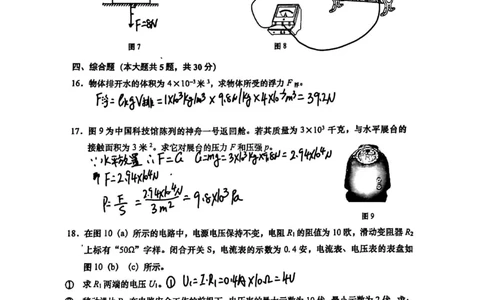 F=8N
图 7
图 8
四、综合题(本大题共 5 题,共 30 分)
16. 物体排开水的体积为 4×10⁻³米³,求物体所受的浮力 F浮。
F浮=ρ液gV排=1×10³kg/m³×9.8N/kg×4×10⁻³m³=39.2N
17. 图 9 为中国科技馆陈列的神舟一号返回舱。若其质量为 3×10³ 千克,与水平展台的
接触面积为 3 米²。求它对展台的压力 F 和压强 p。
∵水平放置 ∴F=G G=mg=3×10³kg×9.8N=2.94×10⁴N
F=2.94×10⁴N
P=F/S=2.94×10⁴N/3m²=9.8×10³Pa
图 9
18. 在图 10 (a) 所示的电路中,电源电压保持不变,电阻 R₁ 的阻值为 10 欧,滑动变阻器 R₂
上标有“50Ω”字样。闭合开关 S,电流表的示数为 0.4 安,电流表、电压表的表盘如
图 10 (b) (c) 所示。
① 求 R₁ 两端的电压 U₁。 ① U₁=I·R₁=0.4A×10Ω=4V